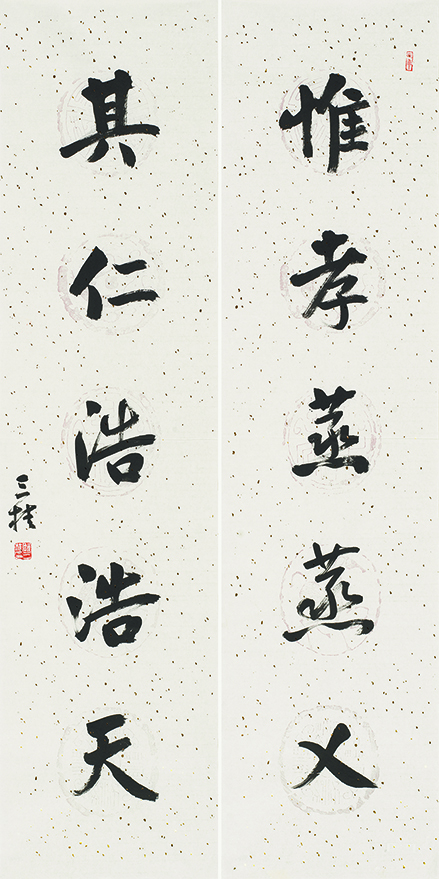 惟孝蒸蒸乂
其仁浩浩天